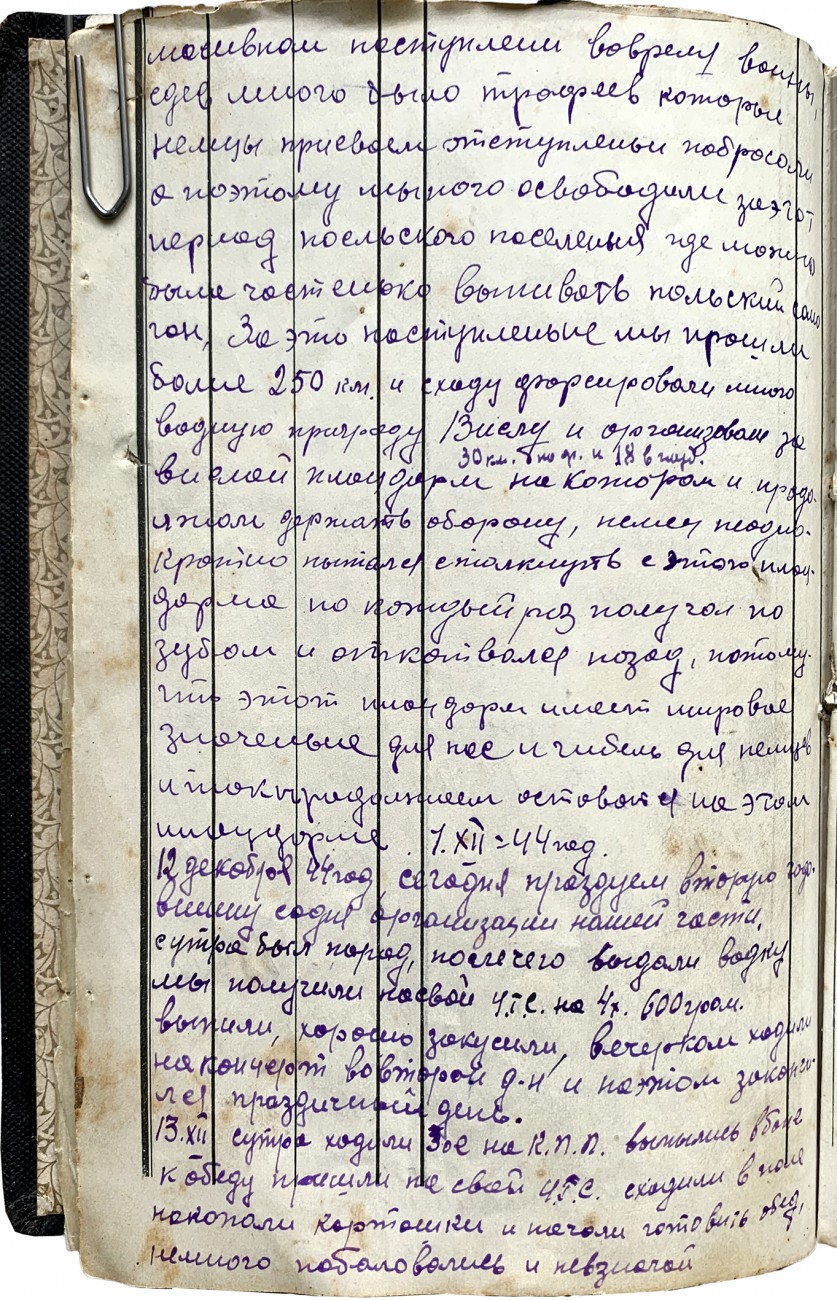 масивном наступлени вовремя войны,
сдев много было трофеев которые
немцы присвоем отступленьи побросали
а поэтому мыного освободили заэтот
период посльского поселенья где можно
было частенько выпивать польский само
гон, За это наступленье мы прошли
более 250 км. и сходу форсировали много
водную приграду Вислу и организовали за
30 км. по фр. и 18 в глуб.
вислой плацдарм на котором и продо-
лжаем держать оборону, немец неодно-
кратно пытался столкнуть с этого плац-
дарма но каждый раз получал по
зубам и откатвался назад, потому-
что этот плацдарм имеет мировое
значенье для нас и гибель для немцев
итак продолжаем оставатся на этом
плацдарме. 1.XII=44 год.
12 декабря 44 год, сегодня празднуем вторую годо-
вшину содня организации нашей части.
сутра был парад, послечего выдали водку
мы получили насвой Ч.Т.С. на 4х. 600 грам.
выпили, хорошо закусили, вечерком ходили
наконцерт вовторой д-н и наэтом закончи-
лся праздничный день.
13.XII сутра ходили Зое на К.П.П. вымылись вбане
к обеду пришли на свой Ч.Т.С. сходили в поле
накопали картошки и начали готовить обед,
немного побаловались и невзначай